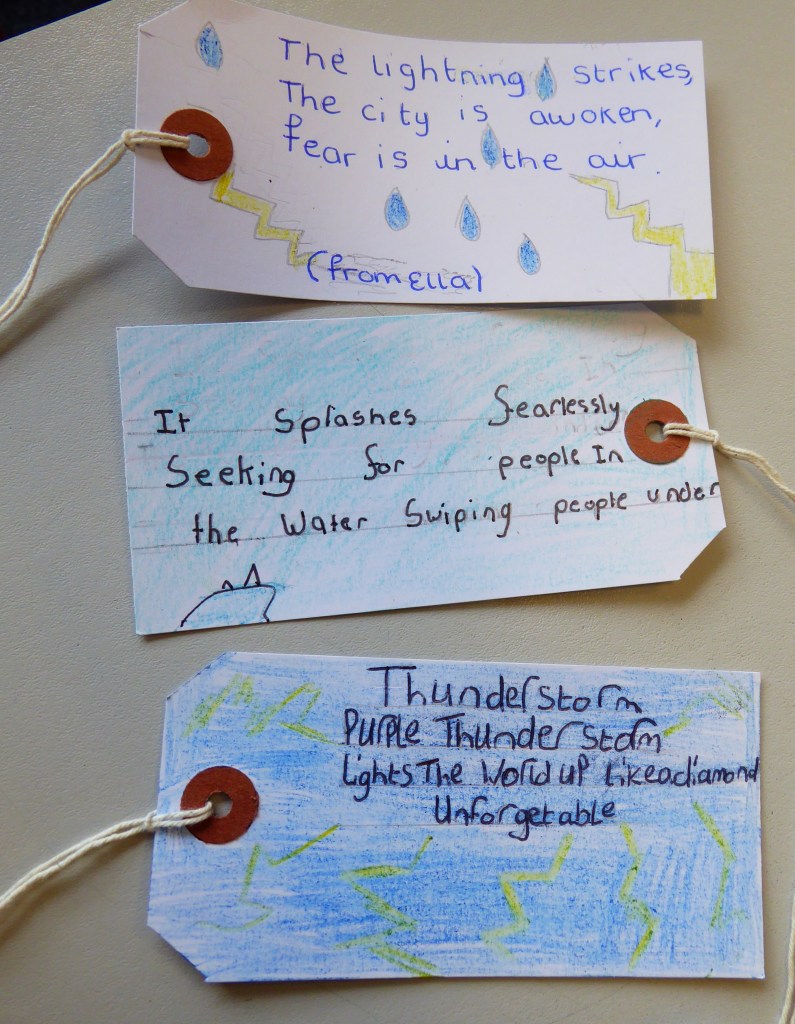 The lightning strikes,
The city is awoken,
fear is in the air.
(from Ella)
It Splashes fearlessly
Seeking for people In
the Water Swiping people under
Thunderstorm
Purple Thunderstorm
Lights The World up Like a diamond
Unforgetable